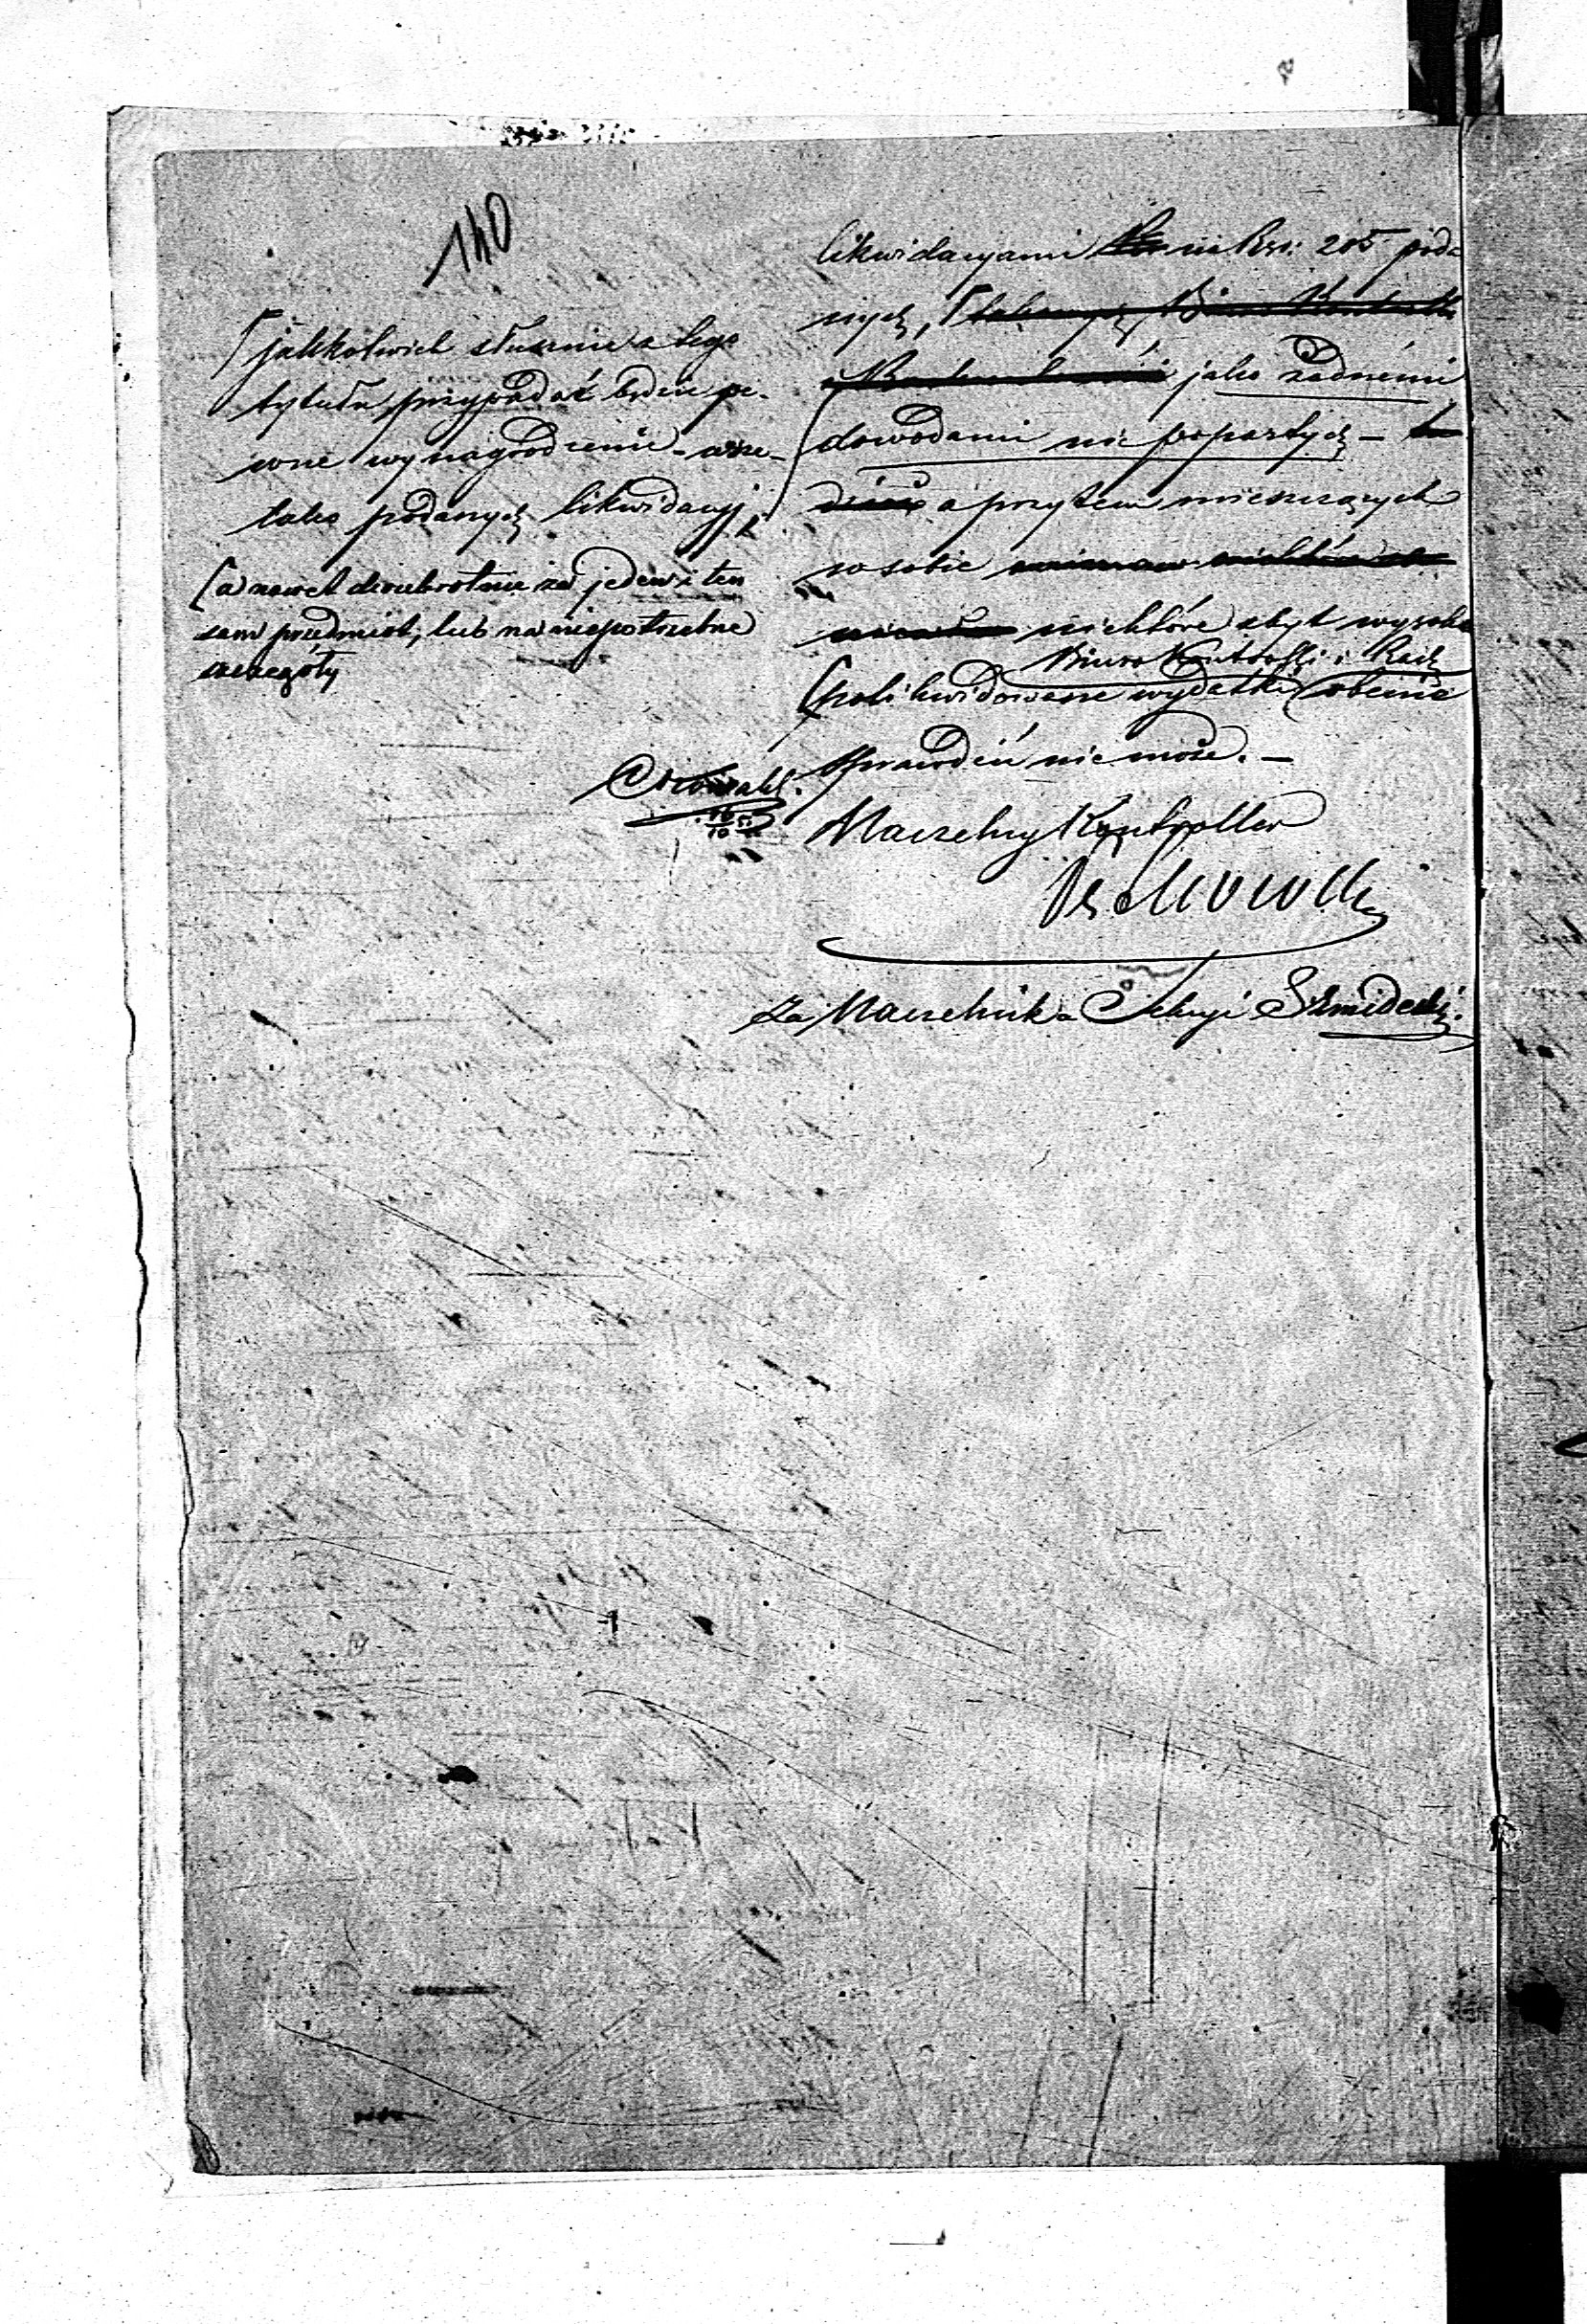 140
jakkolwiek słusznie z tego
tytułu przypadać będzie pe-
wne wynagrodzenie - wsze-
lako podanych likwidacyj
(a nawet dwukrotnie za jeden i ten
sam przedmiot, lub na niepotrzebne
szczegóły
likwidacyami na Rsr: 205 poda
nych,
jako żadnemi
dowodami nie popartych -
a przytem mieszczących
w sobie
niektóre zbyt wysoko
Biuro Kontrolli i Rach
polikwidowane wydatki obecnie
sprawdzić nie może. -
16
10
Naczelny Kontroller
Za Naczelnika Sekcyi